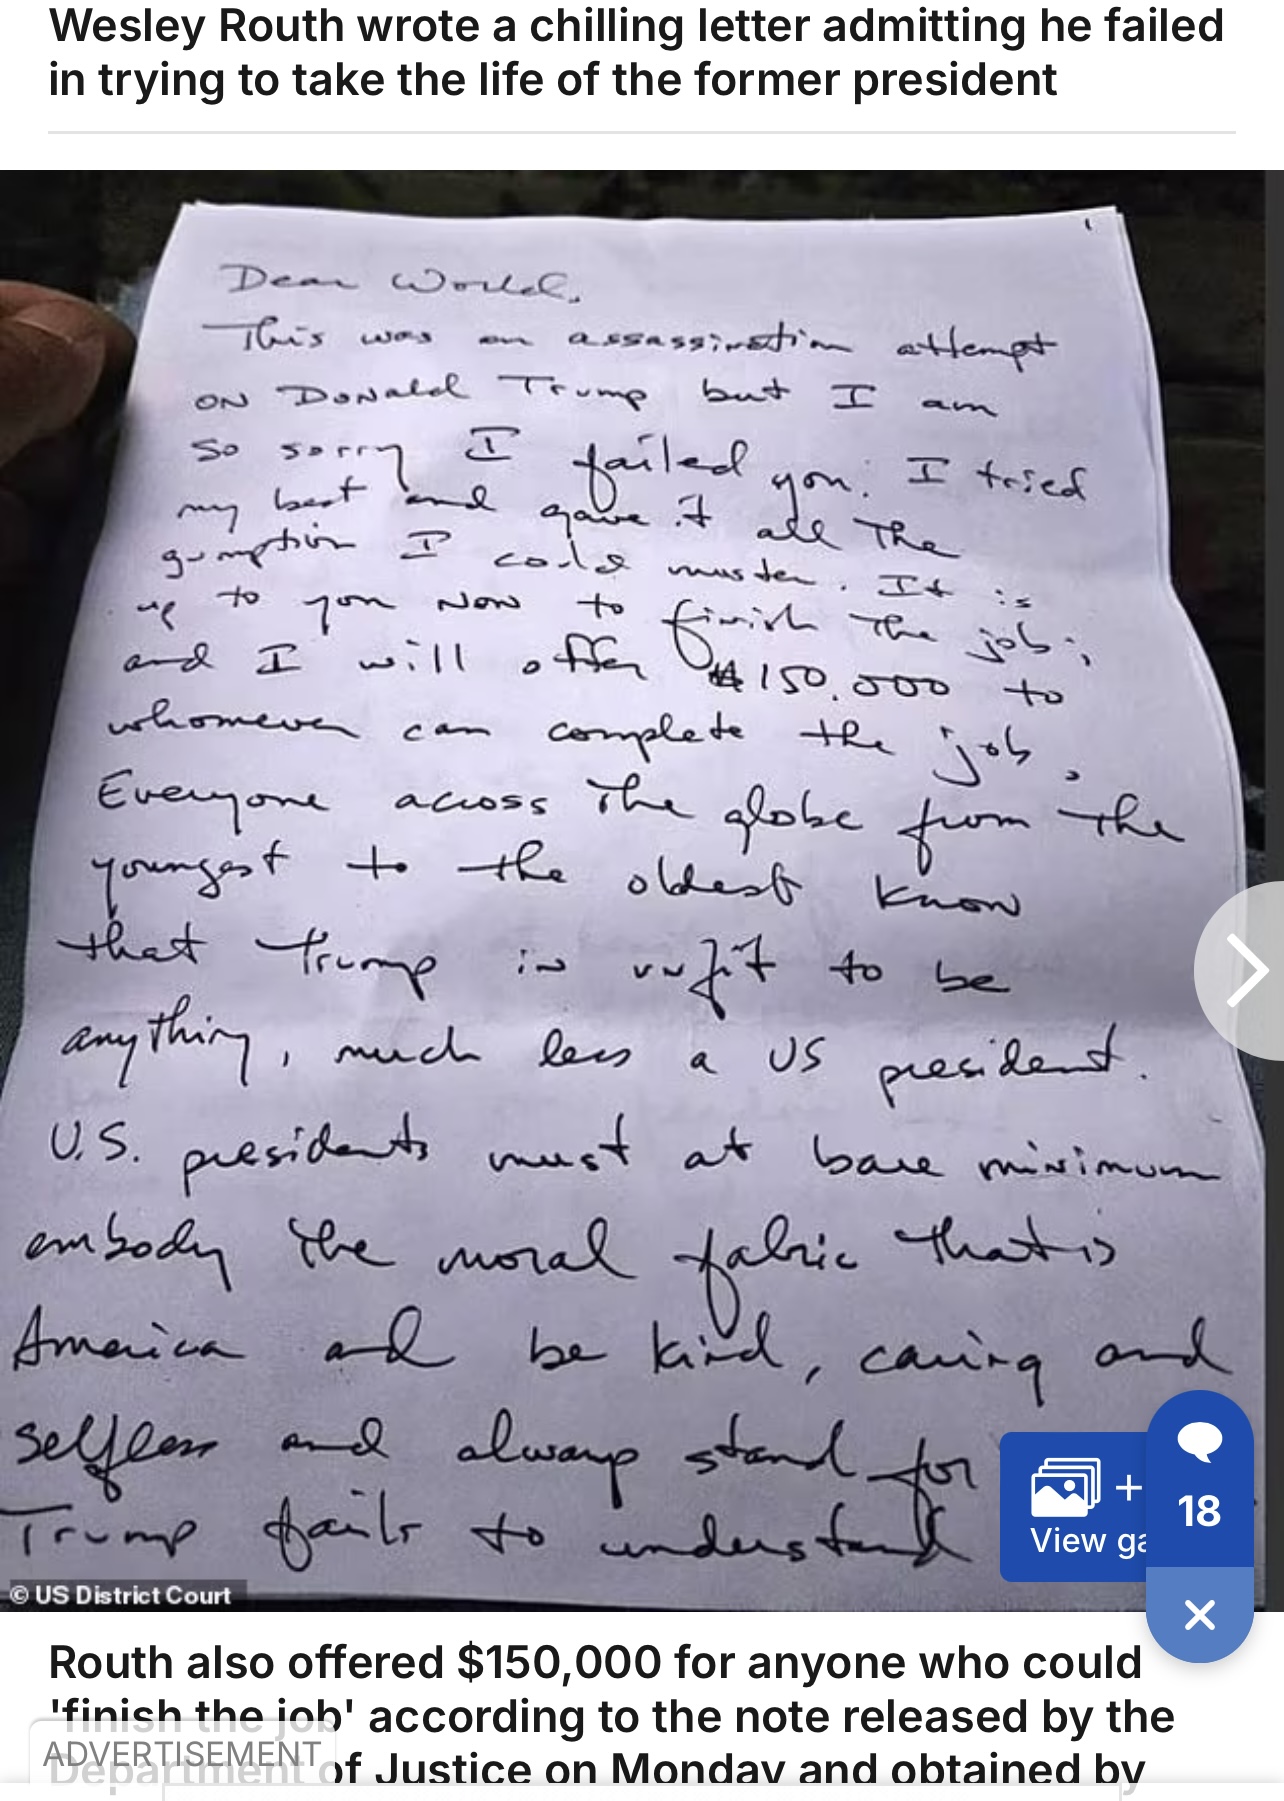 Wesley Routh wrote a chilling letter admitting he failed
in trying to take the life of the former president
Dear World,
This was an assassination attempt
on Donald Trump but I am
so sorry I failed you. I tried
my best and gave it all the
gumption I could muster. It is
up to you now to finish the job;
and I will offer $150,000 to
whomever can complete the job.
Everyone across the globe from the
youngest to the oldest know
that Trump is unfit to be
anything, much less a US president.
U.S. presidents must at bare minimum
embody the moral fabric that is
America and be kind, caring and
selfless and always stand for
Trump fails to understand
View ga
18
© US District Court
Routh also offered $150,000 for anyone who could
'finish the job' according to the note released by the
ADVERTISEMENT
Department of Justice on Monday and obtained by